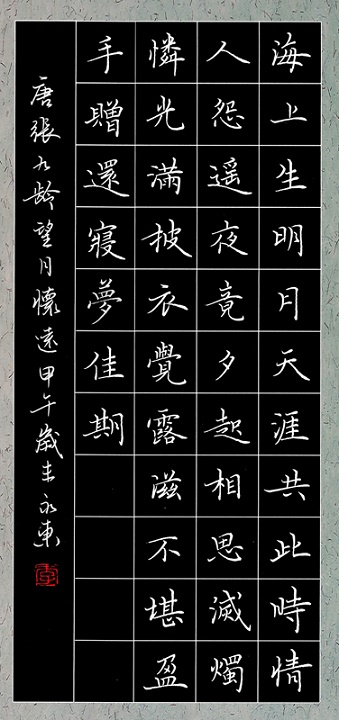 海上生明月天涯共此時情
人怨遥夜竟夕起相思滅燭
憐光滿披衣覺露滋不堪盈
手贈還寢夢佳期
唐張九龄望月懷遠甲午歲末永東